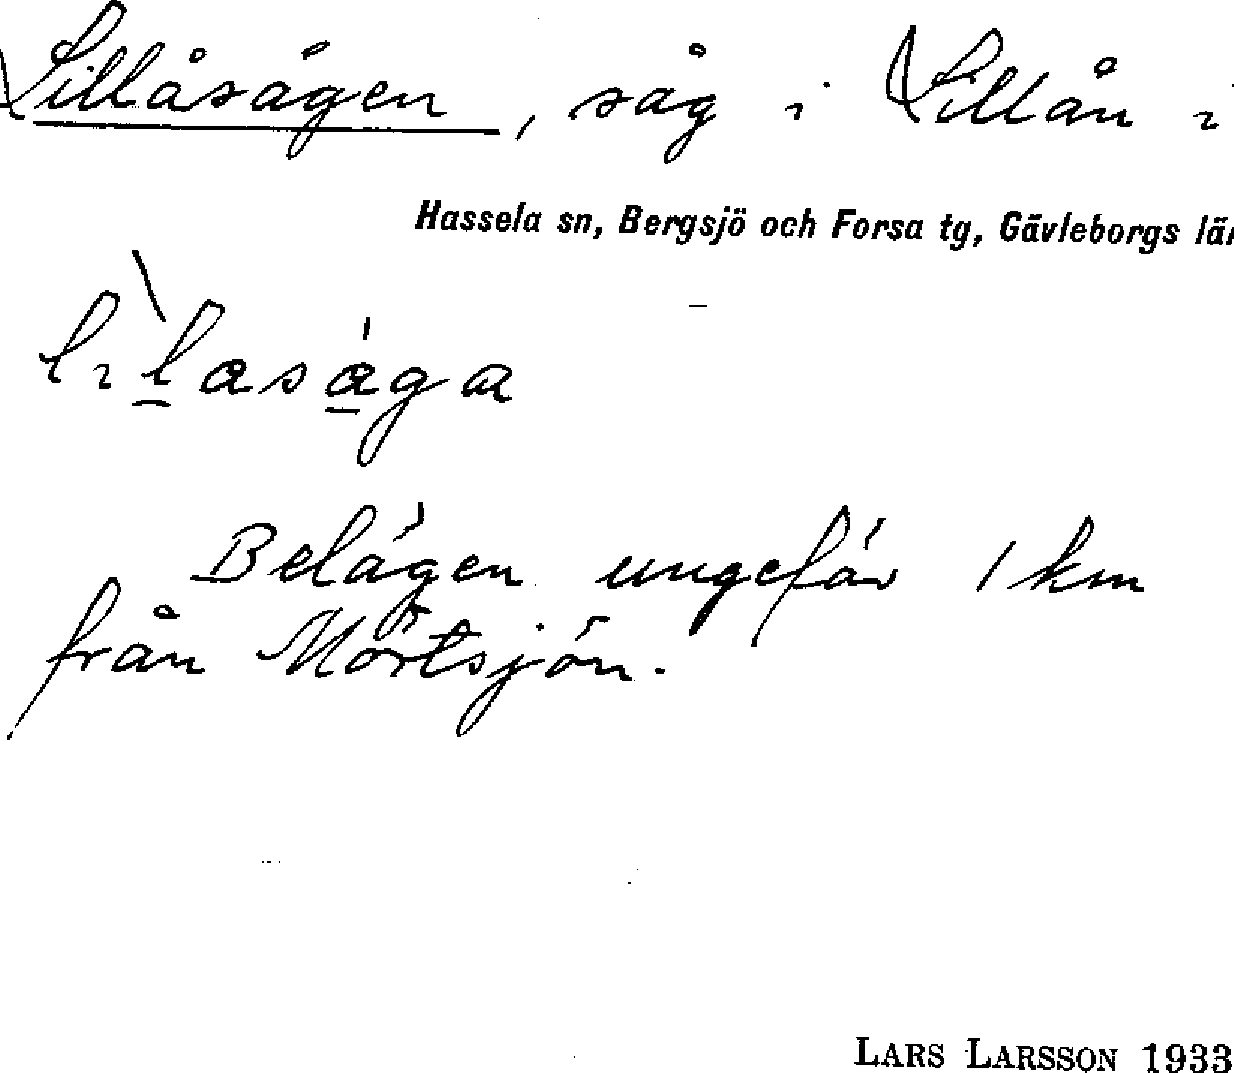 Lillåsågen, såg i Lillån i
Hassela sn, Bergsjö och Forsa tg, Gävleborgs län
lìlasága
Belägen ungefär 1 km
från Mörtsjön.
LARS LARSSON 1933